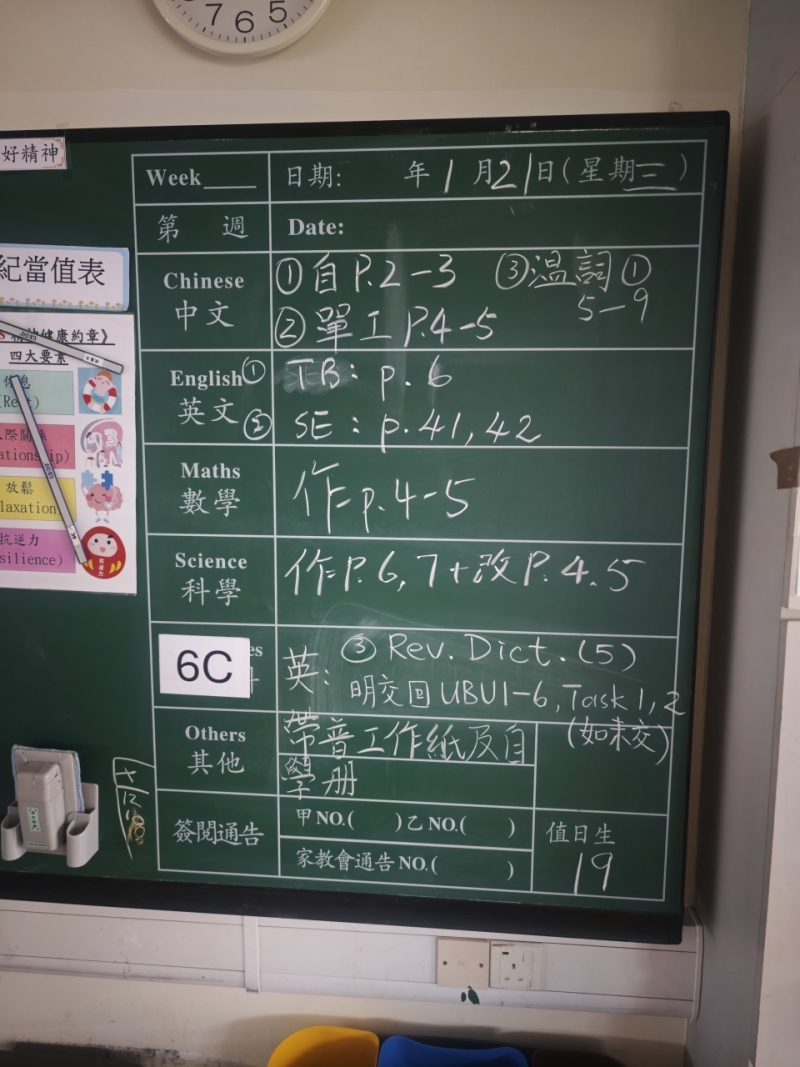 7 6 5
好精神
Week____ 日期: 年1月21日(星期三)
第 週 Date:
紀當值表
Chinese 中文
①自P.2-3 ③温詞①
5-9
②單工P.4-5
健康約章》
四大要素
息
人際關係
放鬆
laxation
抗逆力
silience)
抗逆力
English① TB: p.6
英文② SE: p.41,42
Maths
數學
作p.4-5
Science
科學
作P.6,7+改P.4.5
6C
英: ③Rev. Dict.(5)
明交回UBU1-6,Task1,2
(如未交)
Others
其他
帶普工作紙及自
學册
簽閱通告
甲NO.( )乙NO.( )
家教會通告NO.( )
值日生
19